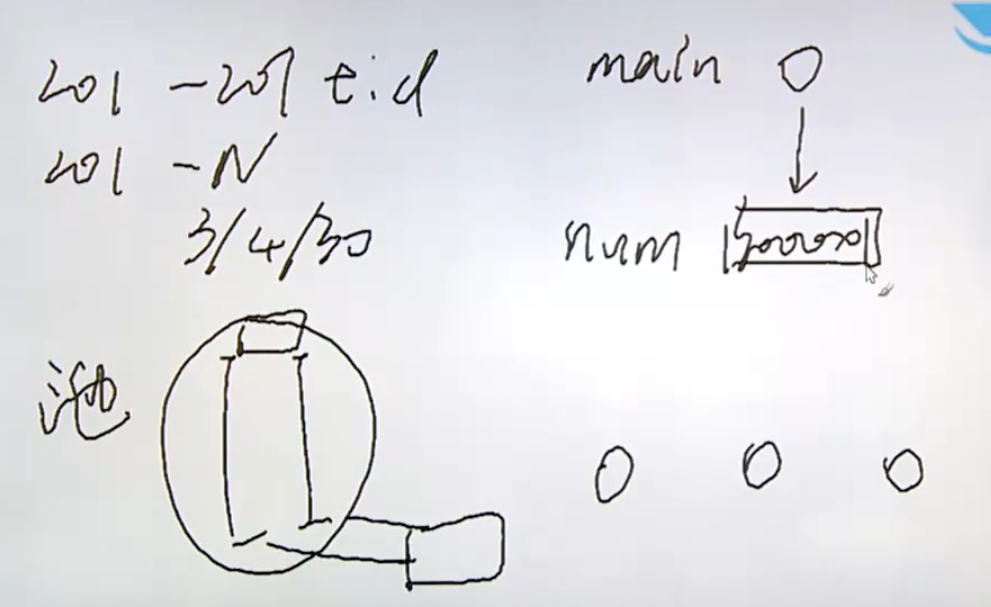 201 -201 tid
201 -N
3/4/30
池
main
num